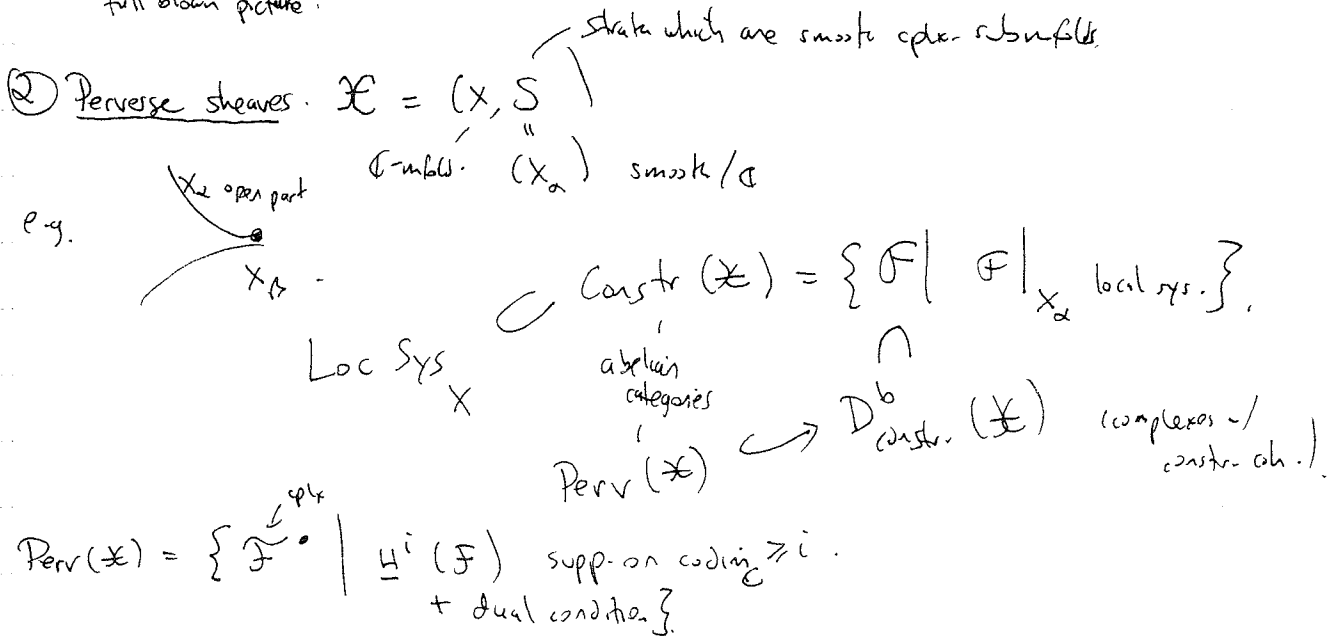 full blown picture.
strata which are smooth cplx. submfolds.
② Perverse sheaves. 𝔛 = (X, S)
ℂ-mfld. " (X_α) smooth/ℂ
e.g. X_α open part
X_β
Constr (𝔛) = { F | F|_{X_α} local sys. }.
Loc Sys_X ⊂ ∩
abelian categories
Perv (𝔛) ↪ D^b_{constr.} (𝔛) (complexes w/ constr. coh.)
cplx
Perv (𝔛) = { F^• | H^i (F) supp. on codim_ℂ ≥ i .
+ dual condition }.